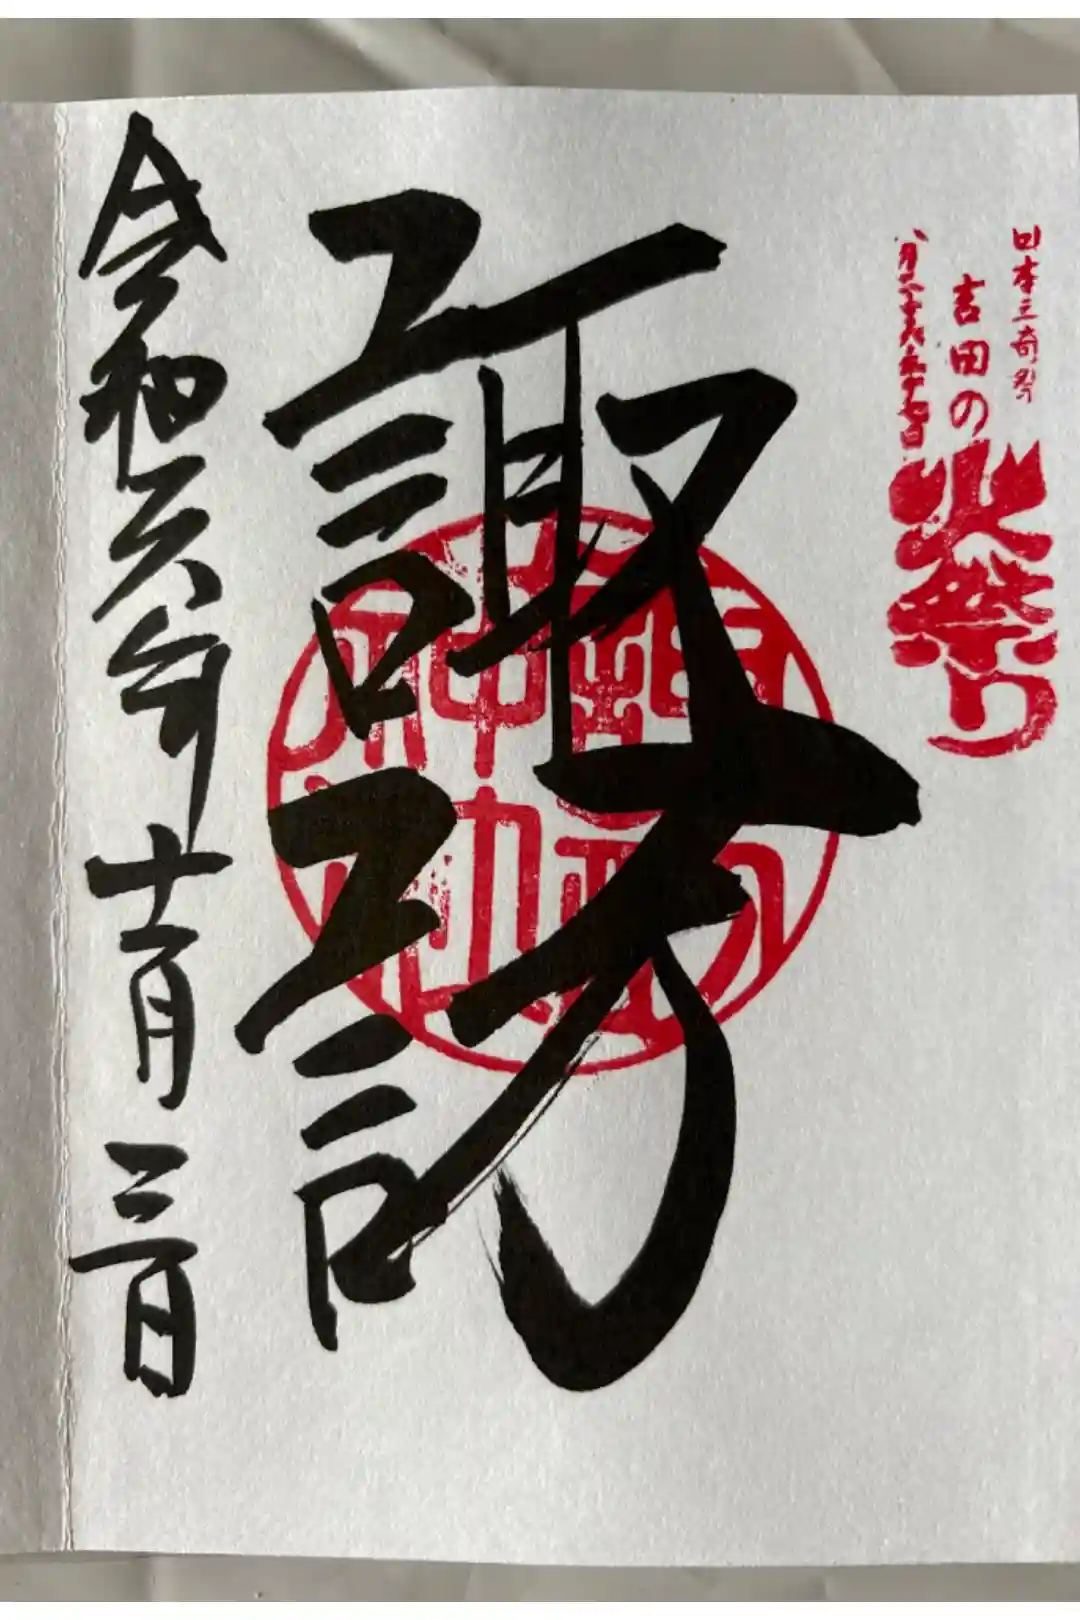 日本三奇祭
吉田の火祭り
八月二十六日二十七日
諏訪
令和六年十一月三日